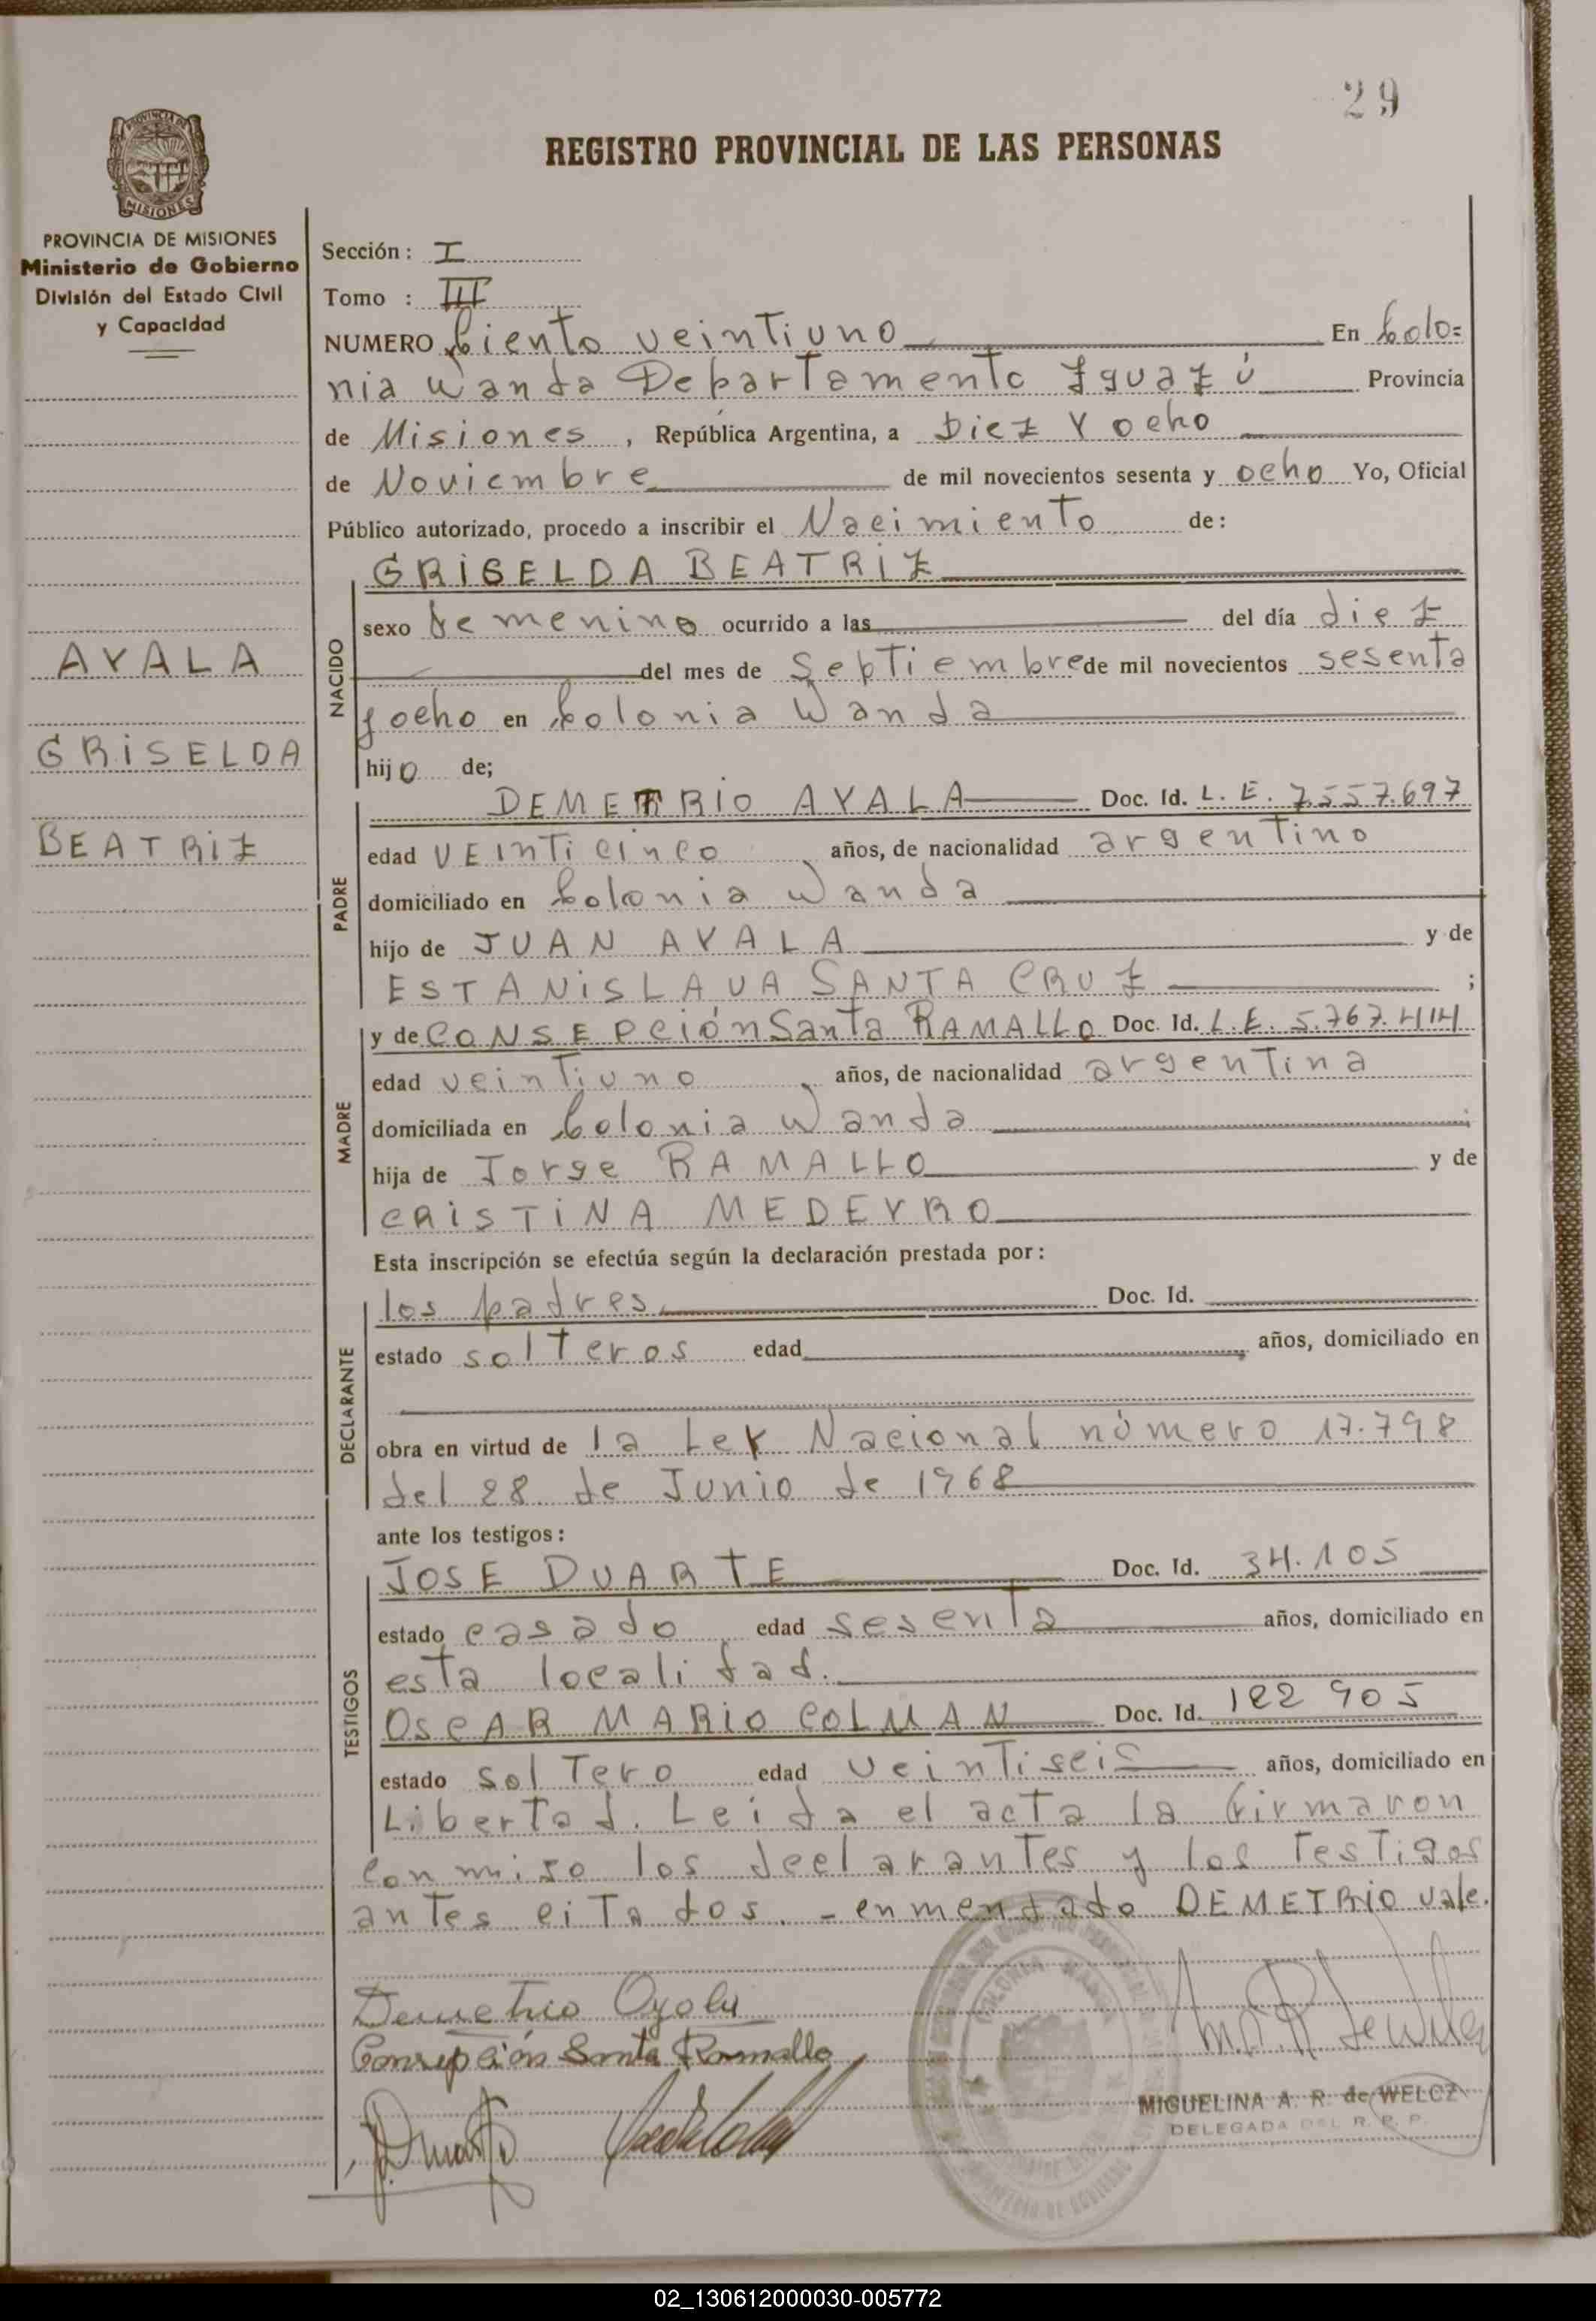 29
REGISTRO PROVINCIAL DE LAS PERSONAS
PROVINCIA DE MISIONES
Ministerio de Gobierno
División del Estado Civil
y Capacidad
AYALA
GRISELDA
BEATRIZ
Sección: I
Tomo : III
NUMERO Ciento veintiuno En Colo=
nia Wanda Departamento Iguazú Provincia
de Misiones, República Argentina, a Diez y ocho
de Noviembre de mil novecientos sesenta y ocho Yo, Oficial
Público autorizado, procedo a inscribir el Nacimiento de:
NACIDO
GRISELDA BEATRIZ
sexo femenino ocurrido a las del día diez
del mes de Septiembre de mil novecientos sesenta
y ocho en Colonia Wanda
hijo de;
PADRE
DEMETRIO AYALA Doc. Id. L.E. 7.557.697
edad VEINTICINCO años, de nacionalidad argentino
domiciliado en Colonia Wanda
hijo de JUAN AYALA y de
ESTANISLAUA SANTA CRUZ ;
MADRE
y de CONSEPCIÓN Santa RAMALLO Doc. Id. L.E. 5.767.414
edad veintiuno años, de nacionalidad argentina
domiciliada en Colonia Wanda
hija de Jorge RAMALLO y de
CRISTINA MEDEYRO
Esta inscripción se efectúa según la declaración prestada por:
DECLARANTE
los padres Doc. Id.
estado solteros edad años, domiciliado en
obra en virtud de la Ley Nacional número 17.798
del 28 de Junio de 1968
ante los testigos:
TESTIGOS
JOSE DUARTE Doc. Id. 34.105
estado casado edad sesenta años, domiciliado en
esta localidad.
OSCAR MARIO COLMAN Doc. Id. 122 905
estado soltero edad veintiseis años, domiciliado en
Libertad. Leida el acta la firmaron
conmigo los declarantes y los testigos
antes citados. - enmendado DEMETRIO vale.
Demetrio Ayala
Consepción Santa Ramallo
MIGUELINA A. R. de WELCZ
DELEGADA DEL R. P. P.
02_130612000030-005772